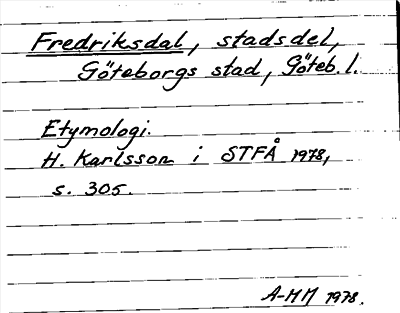 Fredriksdal, stadsdel,
Göteborgs stad, Göteb. l.
Etymologi.
H. Karlsson i STFÅ 1978,
s. 305.
A-MM 1978.